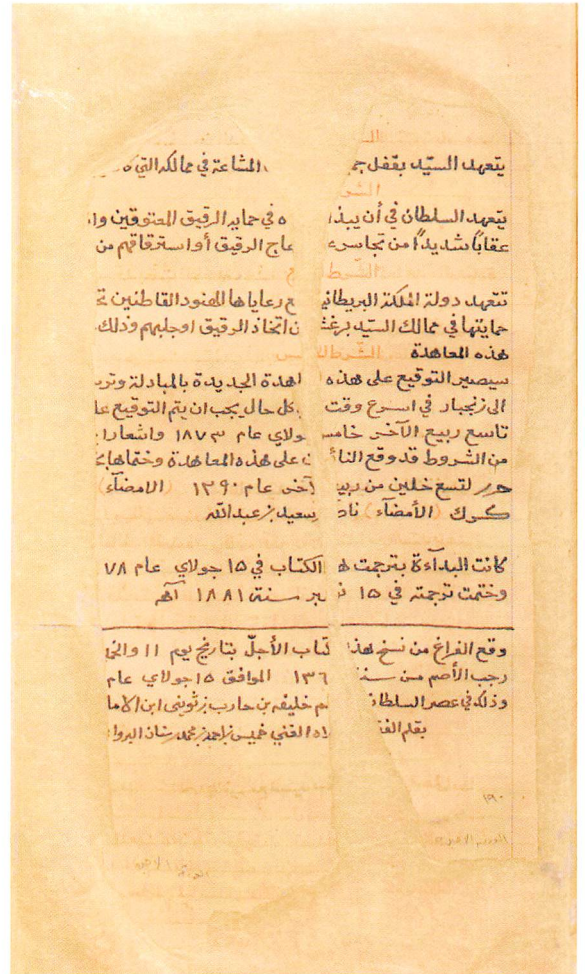 يتعهد السيّد بقفل المشاعة في ممالكه التي
يتعهد السلطان في أن يبذ في حماية الرقيق المعتوقين
عقابًا شديدًا من تجاسر الرقيق أو استرقاقهم من
تتعهد دولة الملكة البريطاني رعاياها الهنود القاطنين
حمايتها في ممالك السيّد برغش اتخاذ الرقيق او جلبهم وذلك
هذه المعاهدة
سيصير التوقيع على هذه اهدة الجديدة بالمبادلة
الى زنجبار في اسرع وقت كل حال يجب ان يتم التوقيع
تاسع ربيع الآخر خامس جولاي عام ١٨٧٣ واشعارا
من الشروط قد وقع النا على هذه المعاهدة وختماها
حرر لتسع خلين من ربيع آخر عام ١٣٩٠ (الامضآء)
كرك (الأمضآء) سعيد بن عبدالله
كانت البدآءة بترجمت الكتاب في ١٥ جولاي عام ٧٨
وختمت ترجمته في ١٥ بر سنة ١٨٨١ اهـ
وقع الفراغ من نسخ هذا كتاب الأجلّ بتاريخ يوم ١١
رجب الأصم من سنة ١٣٦ الموافق ١٥ جولاي عام
وذلك في عصر السلطان خليفه بن حارب بن ثويني ابن الاما
بقلم الغني خميس بن احمد بن محمد
١٩٠